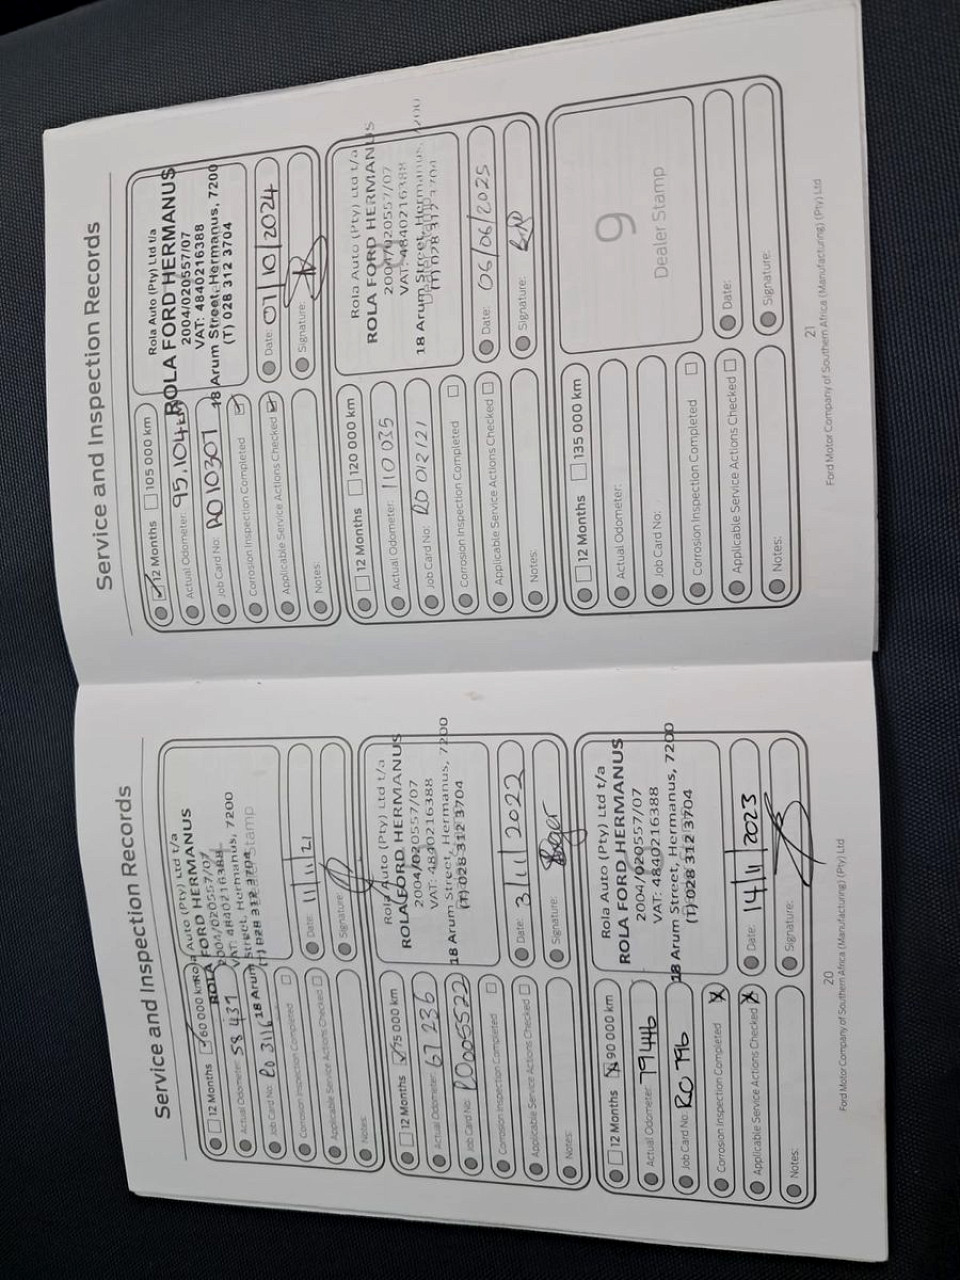 Service and Inspection Records
12 Months 60 000 km
Actual Odometer: 58 437
Job Card No: RO 3116
Corrosion Inspection Completed
Applicable Service Actions Checked
Notes:
Rola Auto (Pty) Ltd t/a
ROLA FORD HERMANUS
2004/020557/07
VAT: 4840216388
18 Arum Street, Hermanus, 7200
(T) 028 312 3704
Dealer Stamp
Date: 11/11/21
Signature:
12 Months 75 000 km
Actual Odometer: 67 236
Job Card No: RO005522
Corrosion Inspection Completed
Applicable Service Actions Checked
Notes:
Rola Auto (Pty) Ltd t/a
ROLA FORD HERMANUS
2004/020557/07
VAT: 4840216388
18 Arum Street, Hermanus, 7200
(T) 028 312 3704
Date: 3/11/2022
Signature:
12 Months 90 000 km
Actual Odometer: 79446
Job Card No: RO 796
Corrosion Inspection Completed
Applicable Service Actions Checked
Notes:
Rola Auto (Pty) Ltd t/a
ROLA FORD HERMANUS
2004/020557/07
VAT: 4840216388
18 Arum Street, Hermanus, 7200
(T) 028 312 3704
Date: 14/11/2023
Signature:
20
Ford Motor Company of Southern Africa (Manufacturing) (Pty) Ltd
Service and Inspection Records
12 Months 105 000 km
Actual Odometer: 95,104
Job Card No: RO10307
Corrosion Inspection Completed
Applicable Service Actions Checked
Notes:
Rola Auto (Pty) Ltd t/a
ROLA FORD HERMANUS
2004/020557/07
VAT: 4840216388
18 Arum Street, Hermanus, 7200
(T) 028 312 3704
Date: 07/10/2024
Signature:
12 Months 120 000 km
Actual Odometer: 110 035
Job Card No: RO 012121
Corrosion Inspection Completed
Applicable Service Actions Checked
Notes:
Rola Auto (Pty) Ltd t/a
ROLA FORD HERMANUS
2004/020557/07
VAT: 4840216388
18 Arum Street, Hermanus, 7200
(T) 028 312 3704
Dealer Stamp
Date: 06/06/2025
Signature:
12 Months 135 000 km
Actual Odometer:
Job Card No:
Corrosion Inspection Completed
Applicable Service Actions Checked
Notes:
9
Dealer Stamp
Date:
Signature:
21
Ford Motor Company of Southern Africa (Manufacturing) (Pty) Ltd